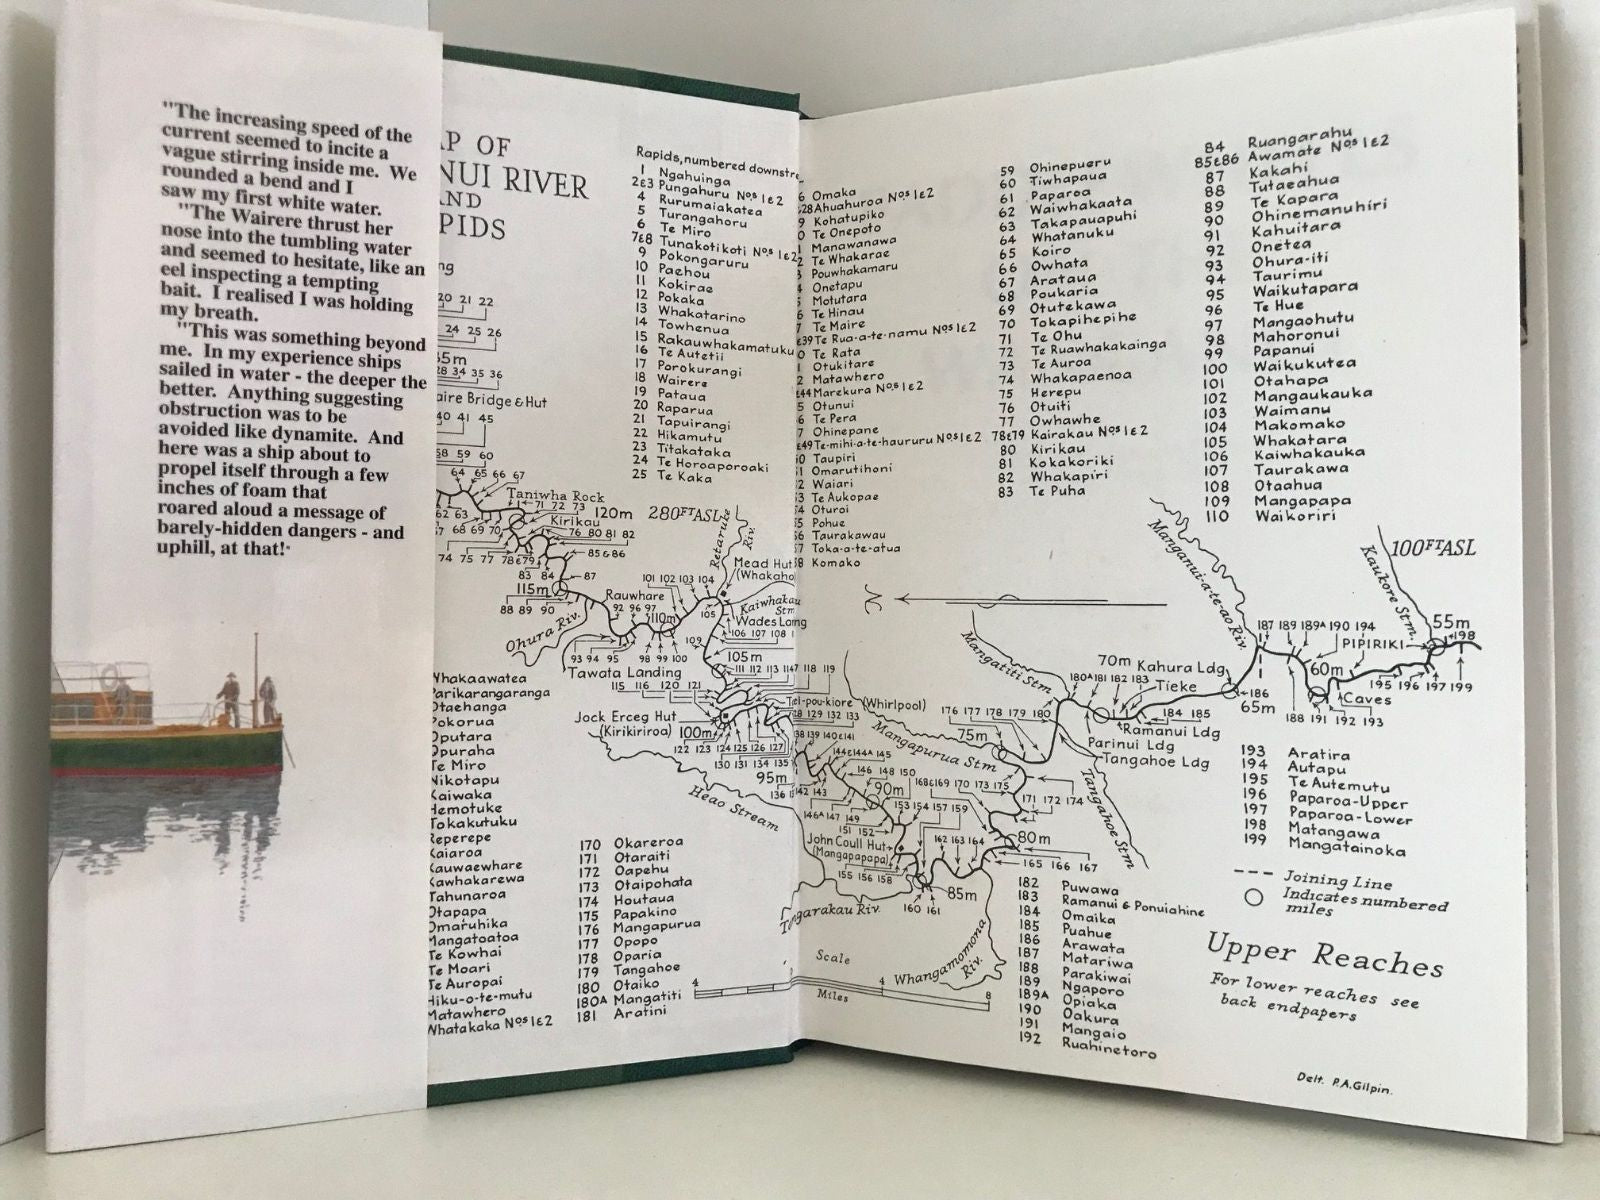 "The increasing speed of the
current seemed to incite a
vague stirring inside me. We
rounded a bend and I
saw my first white water.
"The Wairere thrust her
nose into the tumbling water
and seemed to hesitate, like an
eel inspecting a tempting
bait. I realised I was holding
my breath.
"This was something beyond
me. In my experience ships
sailed in water - the deeper the
better. Anything suggesting
obstruction was to be
avoided like dynamite. And
here was a ship about to
propel itself through a few
inches of foam that
roared aloud a message of
barely-hidden dangers - and
uphill, at that!"
AP OF
NUI RIVER
AND
PIDS
Rapids, numbered downstre
1 Ngahuinga
2&3 Pungahuru Nos 1&2
4 Rurumaiakatea
5 Turangahoru
6 Te Miro
7&8 Tunakotikoti Nos 1&2
9 Pokongaruru
10 Paehou
11 Kokirae
12 Pokaka
13 Whakatarino
14 Towhenua
15 Rakauwhakamatuku
16 Te Autetii
17 Porokurangi
18 Wairere
19 Pataua
20 Raparua
21 Tapuirangi
22 Hikamutu
23 Titakataka
24 Te Horoaporoaki
25 Te Kaka
6 Omaka
&28 Ahuahuroa Nos 1&2
9 Kohatupiko
0 Te Onepoto
1 Manawanawa
2 Te Whakarae
3 Pouwhakamaru
4 Onetapu
5 Motutara
6 Te Hinau
7 Te Maire
&39 Te Rua-a-te-namu Nos 1&2
0 Te Rata
1 Otukitare
2 Matawhero
&44 Marekura Nos 1&2
5 Otunui
6 Te Pera
7 Ohinepane
&49 Te-mihi-a-te-haururu Nos 1&2
50 Taupiri
51 Omarutihoni
52 Waiari
53 Te Aukopae
54 Oturoi
55 Pohue
56 Taurakawau
57 Toka-a-te-atua
58 Komako
59 Ohinepueru
60 Tiwhapaua
61 Paparoa
62 Waiwhakaata
63 Takapauapuhi
64 Whatanuku
65 Koiro
66 Owhata
67 Arataua
68 Poukaria
69 Otutekawa
70 Tokapihepihe
71 Te Ohu
72 Te Ruawhakakainga
73 Te Auroa
74 Whakapaenoa
75 Herepu
76 Otuiti
77 Owhawhe
78&79 Kairakau Nos 1&2
80 Kirikau
81 Kokakoriki
82 Whakapiri
83 Te Puha
84 Ruangarahu
85&86 Awamate Nos 1&2
87 Kakahi
88 Tutaeahua
89 Te Kapara
90 Ohinemanuhiri
91 Kahuitara
92 Onetea
93 Ohura-iti
94 Taurimu
95 Waikutapara
96 Te Hue
97 Mangaohutu
98 Mahoronui
99 Papanui
100 Waikukutea
101 Otahapa
102 Mangaukauka
103 Waimanu
104 Makomako
105 Whakatara
106 Kaiwhakauka
107 Taurakawa
108 Otaahua
109 Mangapapa
110 Waikoriri
ng
20 21 22
24 25 26
65m
28 34 35 36
aire Bridge & Hut
40 41 45
58 59 60
64 65 66 67
Taniwha Rock
71 72 73
120m
280FTASL
Retaruke Riv.
62 63 68 69 70
Kirikau
76 80 81 82
74 75 77 78&79
85&86
83 84 87
115m
88 89 90
Rauwhare
92 96 97
110m
101 102 103 104
105
Mead Hut
(Whakaho
Kaiwhakau
Stm
Wades Ldng
106 107 108
109
Ohura Riv.
93 94 95 98 99 100
Tawata Landing
105m
111 112 113 114 117 118 119
115 116 120 121
Jock Erceg Hut
(Kirikiriroa)
100m
Tei-pou-kiore (Whirlpool)
128 129 132 133
122 123 124 125 126 127
130 131 134 135
95m
136
Heao Stream
138 139 140&141
144&144A 145
142 143
146 148 150
90m
146A 147 149
151 152
153 154 157 159
John Coull Hut
(Mangapapapa)
155 156 158
160 161
85m
162 163 164
168&169 170 173 175
171 172 174
80m
165 166 167
Tangarakau Riv.
Whangamomona
Riv.
N
Mangapurua Stm
176 177 178 179 180
75m
Mangatiti Stm
180A 181 182 183
70m Kahura Ldg
Tieke
184 185
Ramanui Ldg
Parinui Ldg
Tangahoe Ldg
Tangahoe Stm
Manganui-a-te-ao Riv.
186
65m
187 189 189A 190 194
PIPIRIKI
60m
188 191 192 193
Caves
195 196 197 199
Kaukore Stm.
100FTASL
55m
198
Whakaawatea
Parikarangaranga
Otaehanga
Pokorua
Oputara
Opuraha
Te Miro
Nikotapu
Kaiwaka
Hemotuke
Tokakutuku
Reperepe
Kaiaroa
Kauwaewhare
Kawhakarewa
Tahunaroa
Otapapa
Omaruhika
Mangatoatoa
Te Kowhai
Te Moari
Te Auropai
Hiku-o-te-mutu
Matawhero
Whatakaka Nos 1&2
170 Okareroa
171 Otaraiti
172 Oapehu
173 Otaipohata
174 Houtaua
175 Papakino
176 Mangapurua
177 Opopo
178 Oparia
179 Tangahoe
180 Otaiko
180A Mangatiti
181 Aratini
4 Scale 4 8
Miles
182 Puwawa
183 Ramanui & Ponuiahine
184 Omaika
185 Puahue
186 Arawata
187 Matariwa
188 Parakiwai
189 Ngaporo
189A Opiaka
190 Oakura
191 Mangaio
192 Ruahinetoro
193 Aratira
194 Autapu
195 Te Autemutu
196 Paparoa-Upper
197 Paparoa-Lower
198 Matangawa
199 Mangatainoka
Joining Line
Indicates numbered
miles
Upper Reaches
For lower reaches see
back endpapers
Delt. P.A.Gilpin.